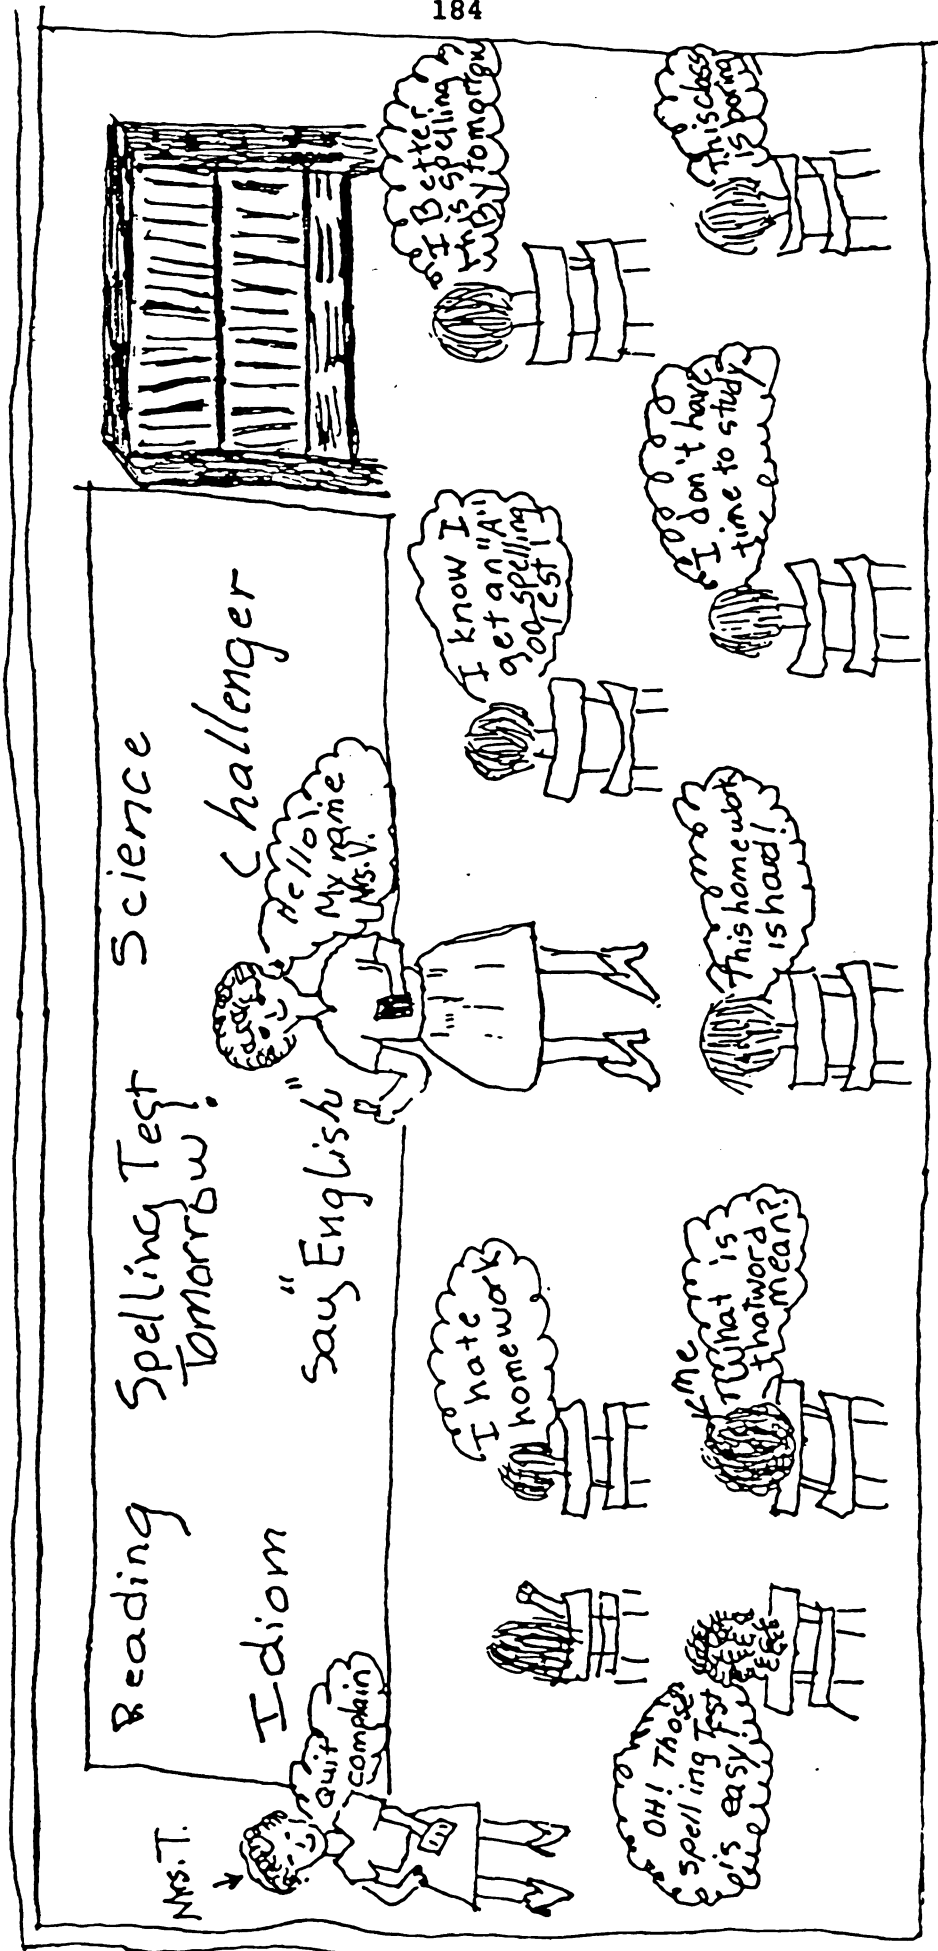 184
Reading
Spelling Test
Tomorrow!
Science
Idiom
Say "English"
Challenger
Mrs. T.
Quit
complain
Hello!
My name
Mrs. V.
I hate
homework
I know I
get an "A"
on spelling
Test!
I Better
this spelling
By tomorrow
OH! Those
spelling Test
is easy!
me
What is
that word
mean?
This homework
is hard!
I don't have
time to study
This class
is boring